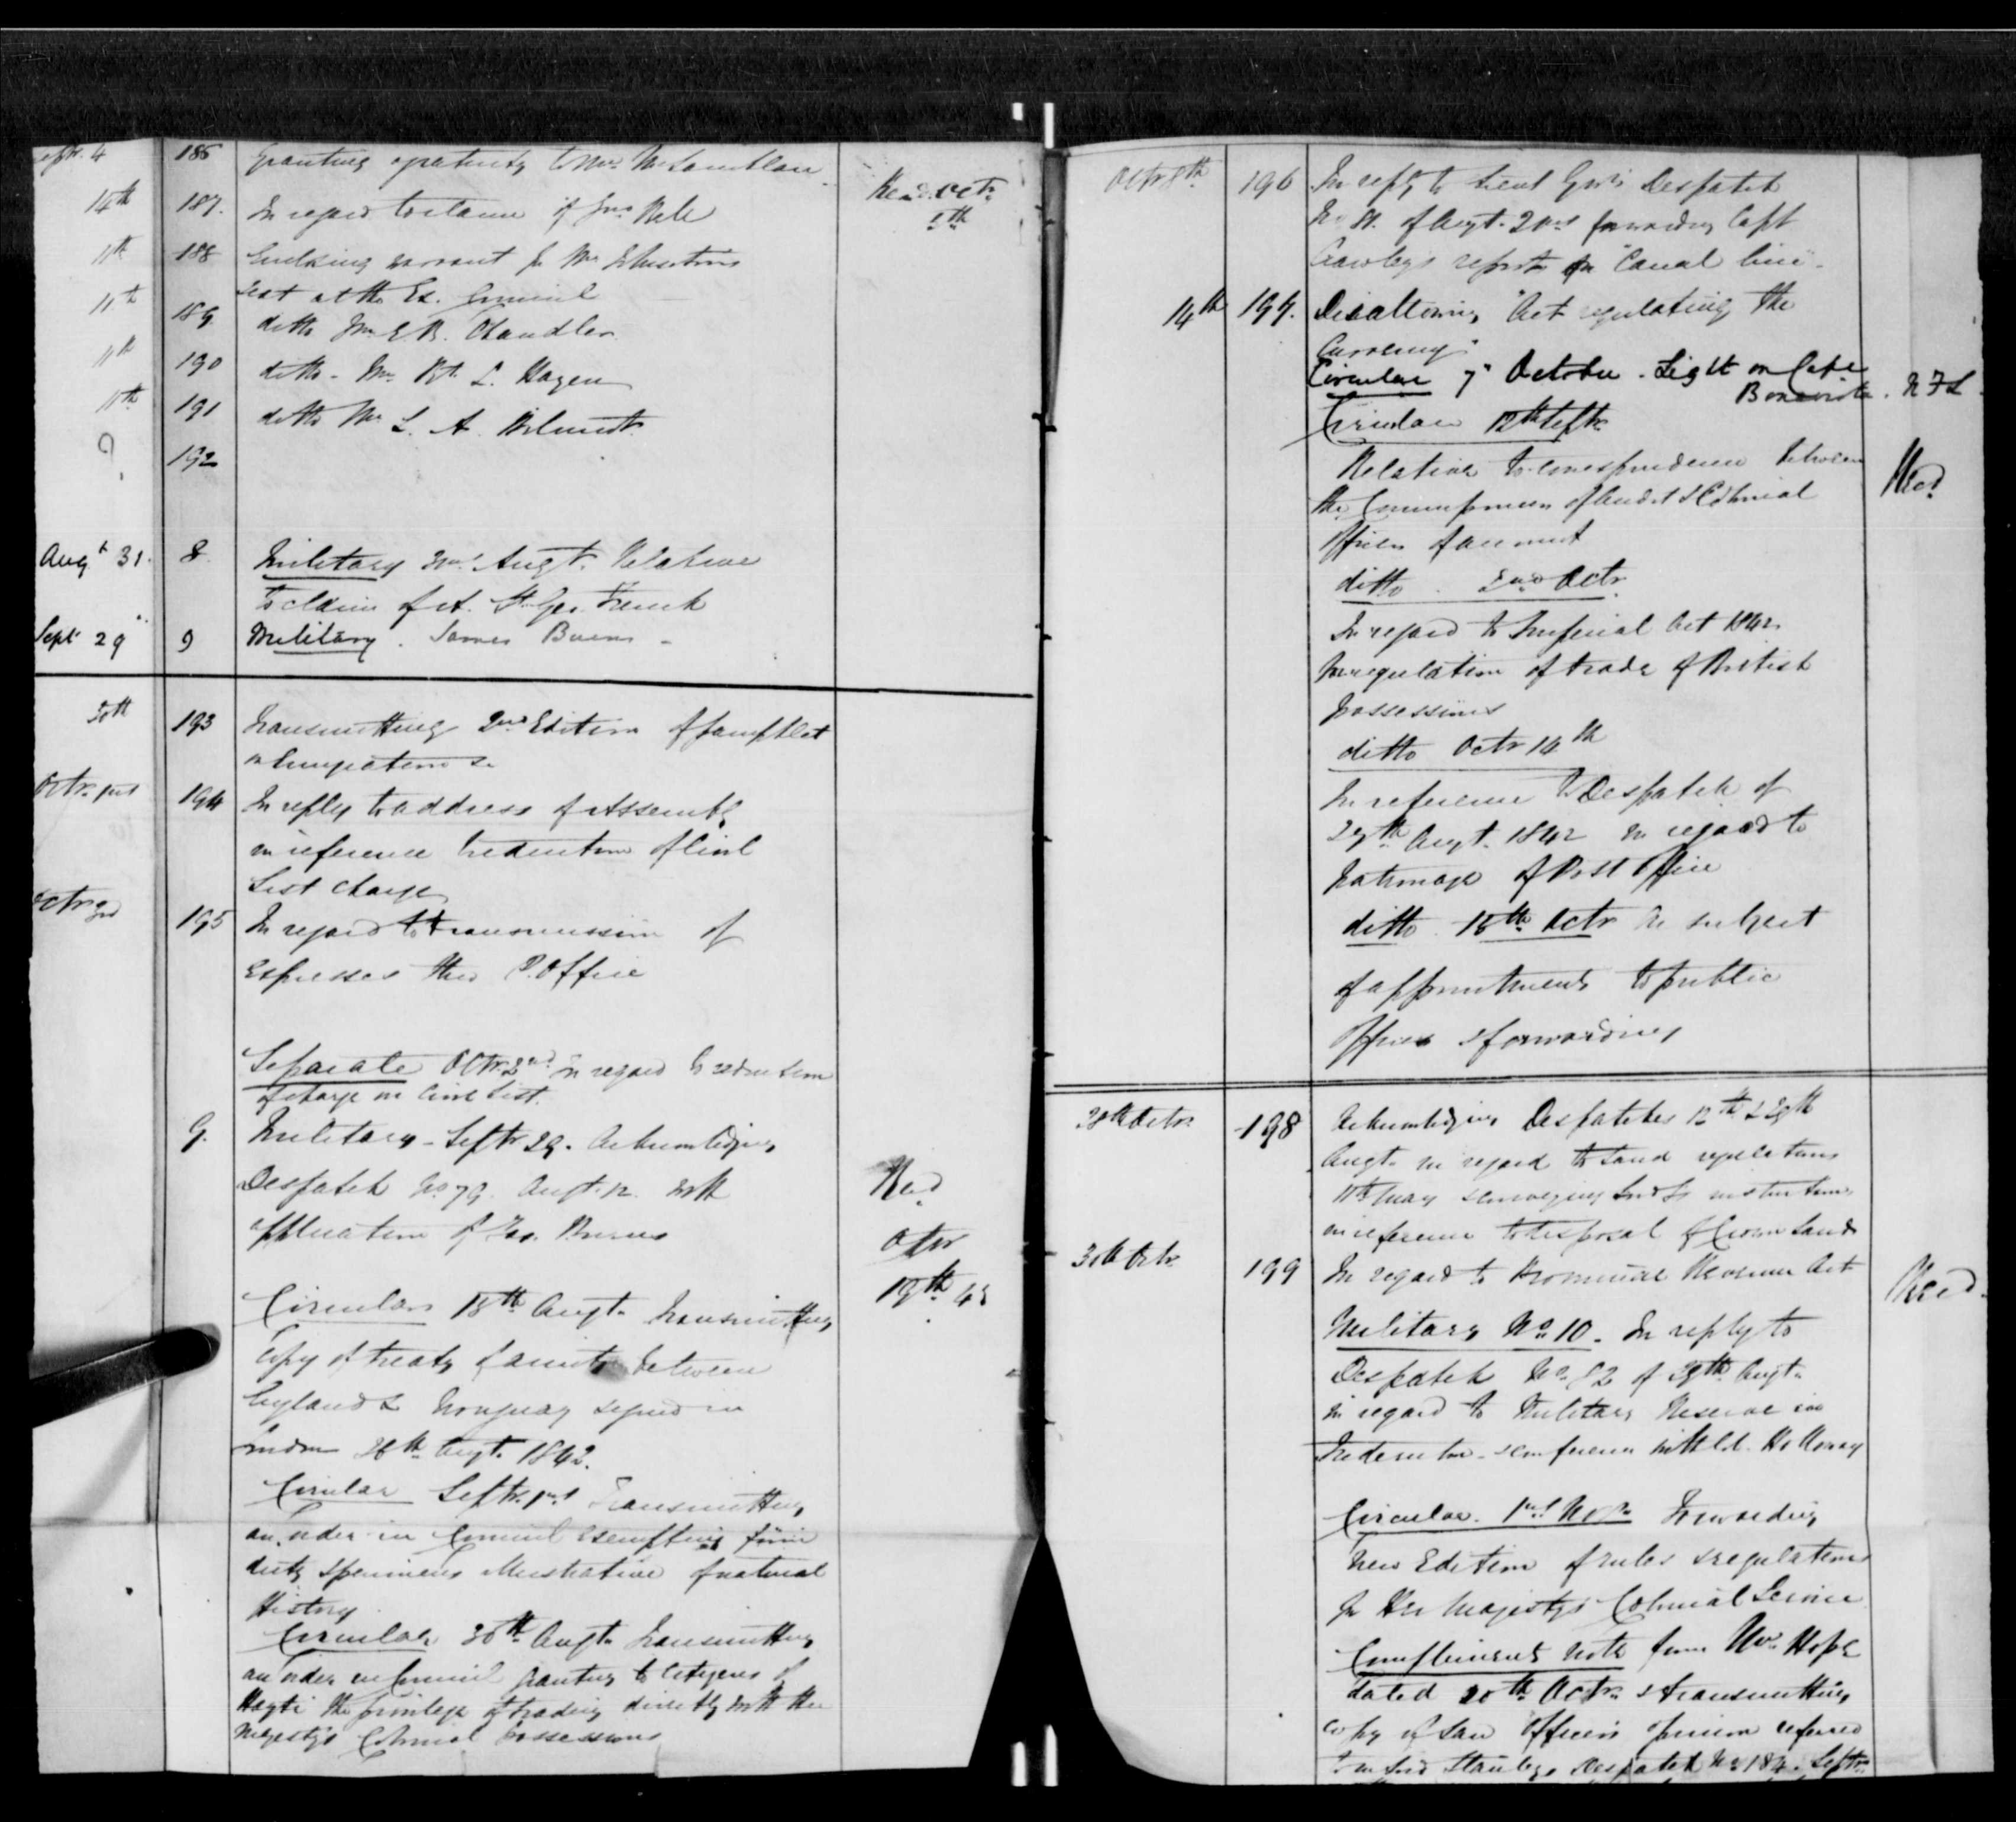 Sept. 4 186 Granting gratuity to Mrs
14th 187. In regard to claim of Jno
Recd. Octr.
5th
11th 188 Enclosing warrant for Mr Johnston's
seat at the Ex. Council
11th 189. ditto Mr E B. Chandler
11th 190 ditto - Mr Rt. L. Hazen
11th 191 ditto Mr L. A. Wilmot
? 192
Augt 31. 8. Military 31st Augt. Relative
to claim of A. St Geo. French
Sept 29 9 Military. James Burns -
30th 193 Transmitting 2nd Edition of pamphlet
on Emigration &c
Octr. 1st 194 In reply to address of Assembly
in reference to reduction of Civil
List charge
Octr 3rd 195 In regard to transmission of
Expresses thro P. Office
Separate Octr. 2nd In regard to reduction
of charge on Civil List.
9. Military - Septr 29. Acknowledging
Despatch No 79. Augt. 12. with
application of Jas. Burns
Recd
Octr
19th 42
Circular 15th Augt. transmitting
Copy of treaty of amity between
England & Uruguay signed in
London 26th Augt. 1842.
Circular Septr. 1st Transmitting
an order in Council exempting from
duty specimens illustrative of natural
History
Circular 30th Augt. transmitting
an order in Council granting to Citizens of
Hayti the privilege of trading directly with Her
Majesty's Colonial possessions
Octr 8th 196 In reply to Lieut Govr's Despatch
of Augt. 2nd forwarding Capt
Crawley's report on "Canal line" -
14th 197. Disallowing "Act regulating the
Currency"
Circular 7" October. Light on Cape
Bonavista. N F L.
Circular 12th Septr.
Relative to correspondence between
the Commissioners of Audit & Colonial
Officers of account
Recd
ditto 2nd Octr.
In regard to Imperial Act 1842
for regulation of trade of British
possessions
ditto Octr 14th
In reference to Despatch of
29th Augt. 1842 in regard to
patronage of Post Office
ditto. 15th Octr on subject
of appointments to public
Offices & forwarding
28th Octr. 198 Acknowledging Despatches 12th & 29th
Augt. in regard to Land regulations
11th May & conveying further instructions
in reference to disposal of Crown Lands
30th Octr. 199 In regard to Provincial Revenue Act
Recd.
Military No. 10. In reply to
Despatch No. 82 of 29th Augt.
in regard to Military Reserve in
Fredericton - & conference with Col. Holloway
Circular. 1st Novr. Forwarding
new Edition of rules & regulations
for Her Majesty's Colonial Service
Compliments note from Mr. Hope
dated 20th Octr. & transmitting
copy of Law Officers opinion referred
to in Lord Stanley's Despatch No 184. Septr.